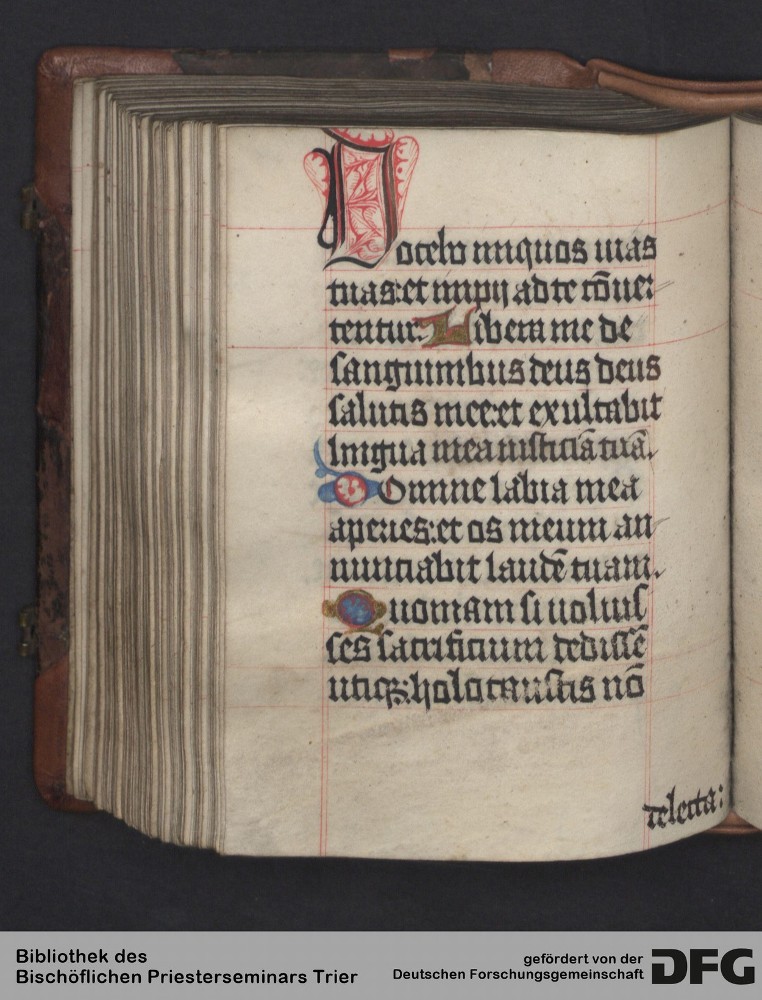 Docebo iniquos uias
tuas: et impij ad te cōuer
tentur. Libera me de
sanguinibus deus deus
salutis mee: et exultabit
lingua mea iusticiā tuā.
Domine labia mea
aperies: et os meum an
nunciabit laudē tuam.
Quoniam si uoluis
ses sacrificium dedissē
utiqꝫ: holocaustis nō
delecta:
Bibliothek des
Bischöflichen Priesterseminars Trier
gefördert von der
Deutschen Forschungsgemeinschaft
DFG